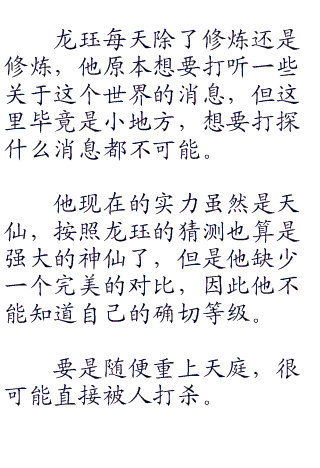 龙珏每天除了修炼还是
修炼，他原本想要打听一些
关于这个世界的消息，但这
里毕竟是小地方，想要打探
什么消息都不可能。
他现在的实力虽然是天
仙，按照龙珏的猜测也算是
强大的神仙了，但是他缺少
一个完美的对比，因此他不
能知道自己的确切等级。
要是随便重上天庭，很
可能直接被人打杀。